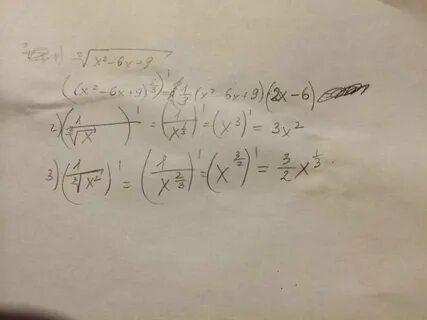 1) ∛(x²-6x+9)
((x²-6x+9)^(1/3))' = (1/3)(x²-6x+9)(2x-6)
2) (1/∛x)' = (1/x^3)' = (x³)' = 3x²
3) (1/∛x²)' = (1/x^(2/3))' = (x^(3/2))' = (3/2)x^(1/3)